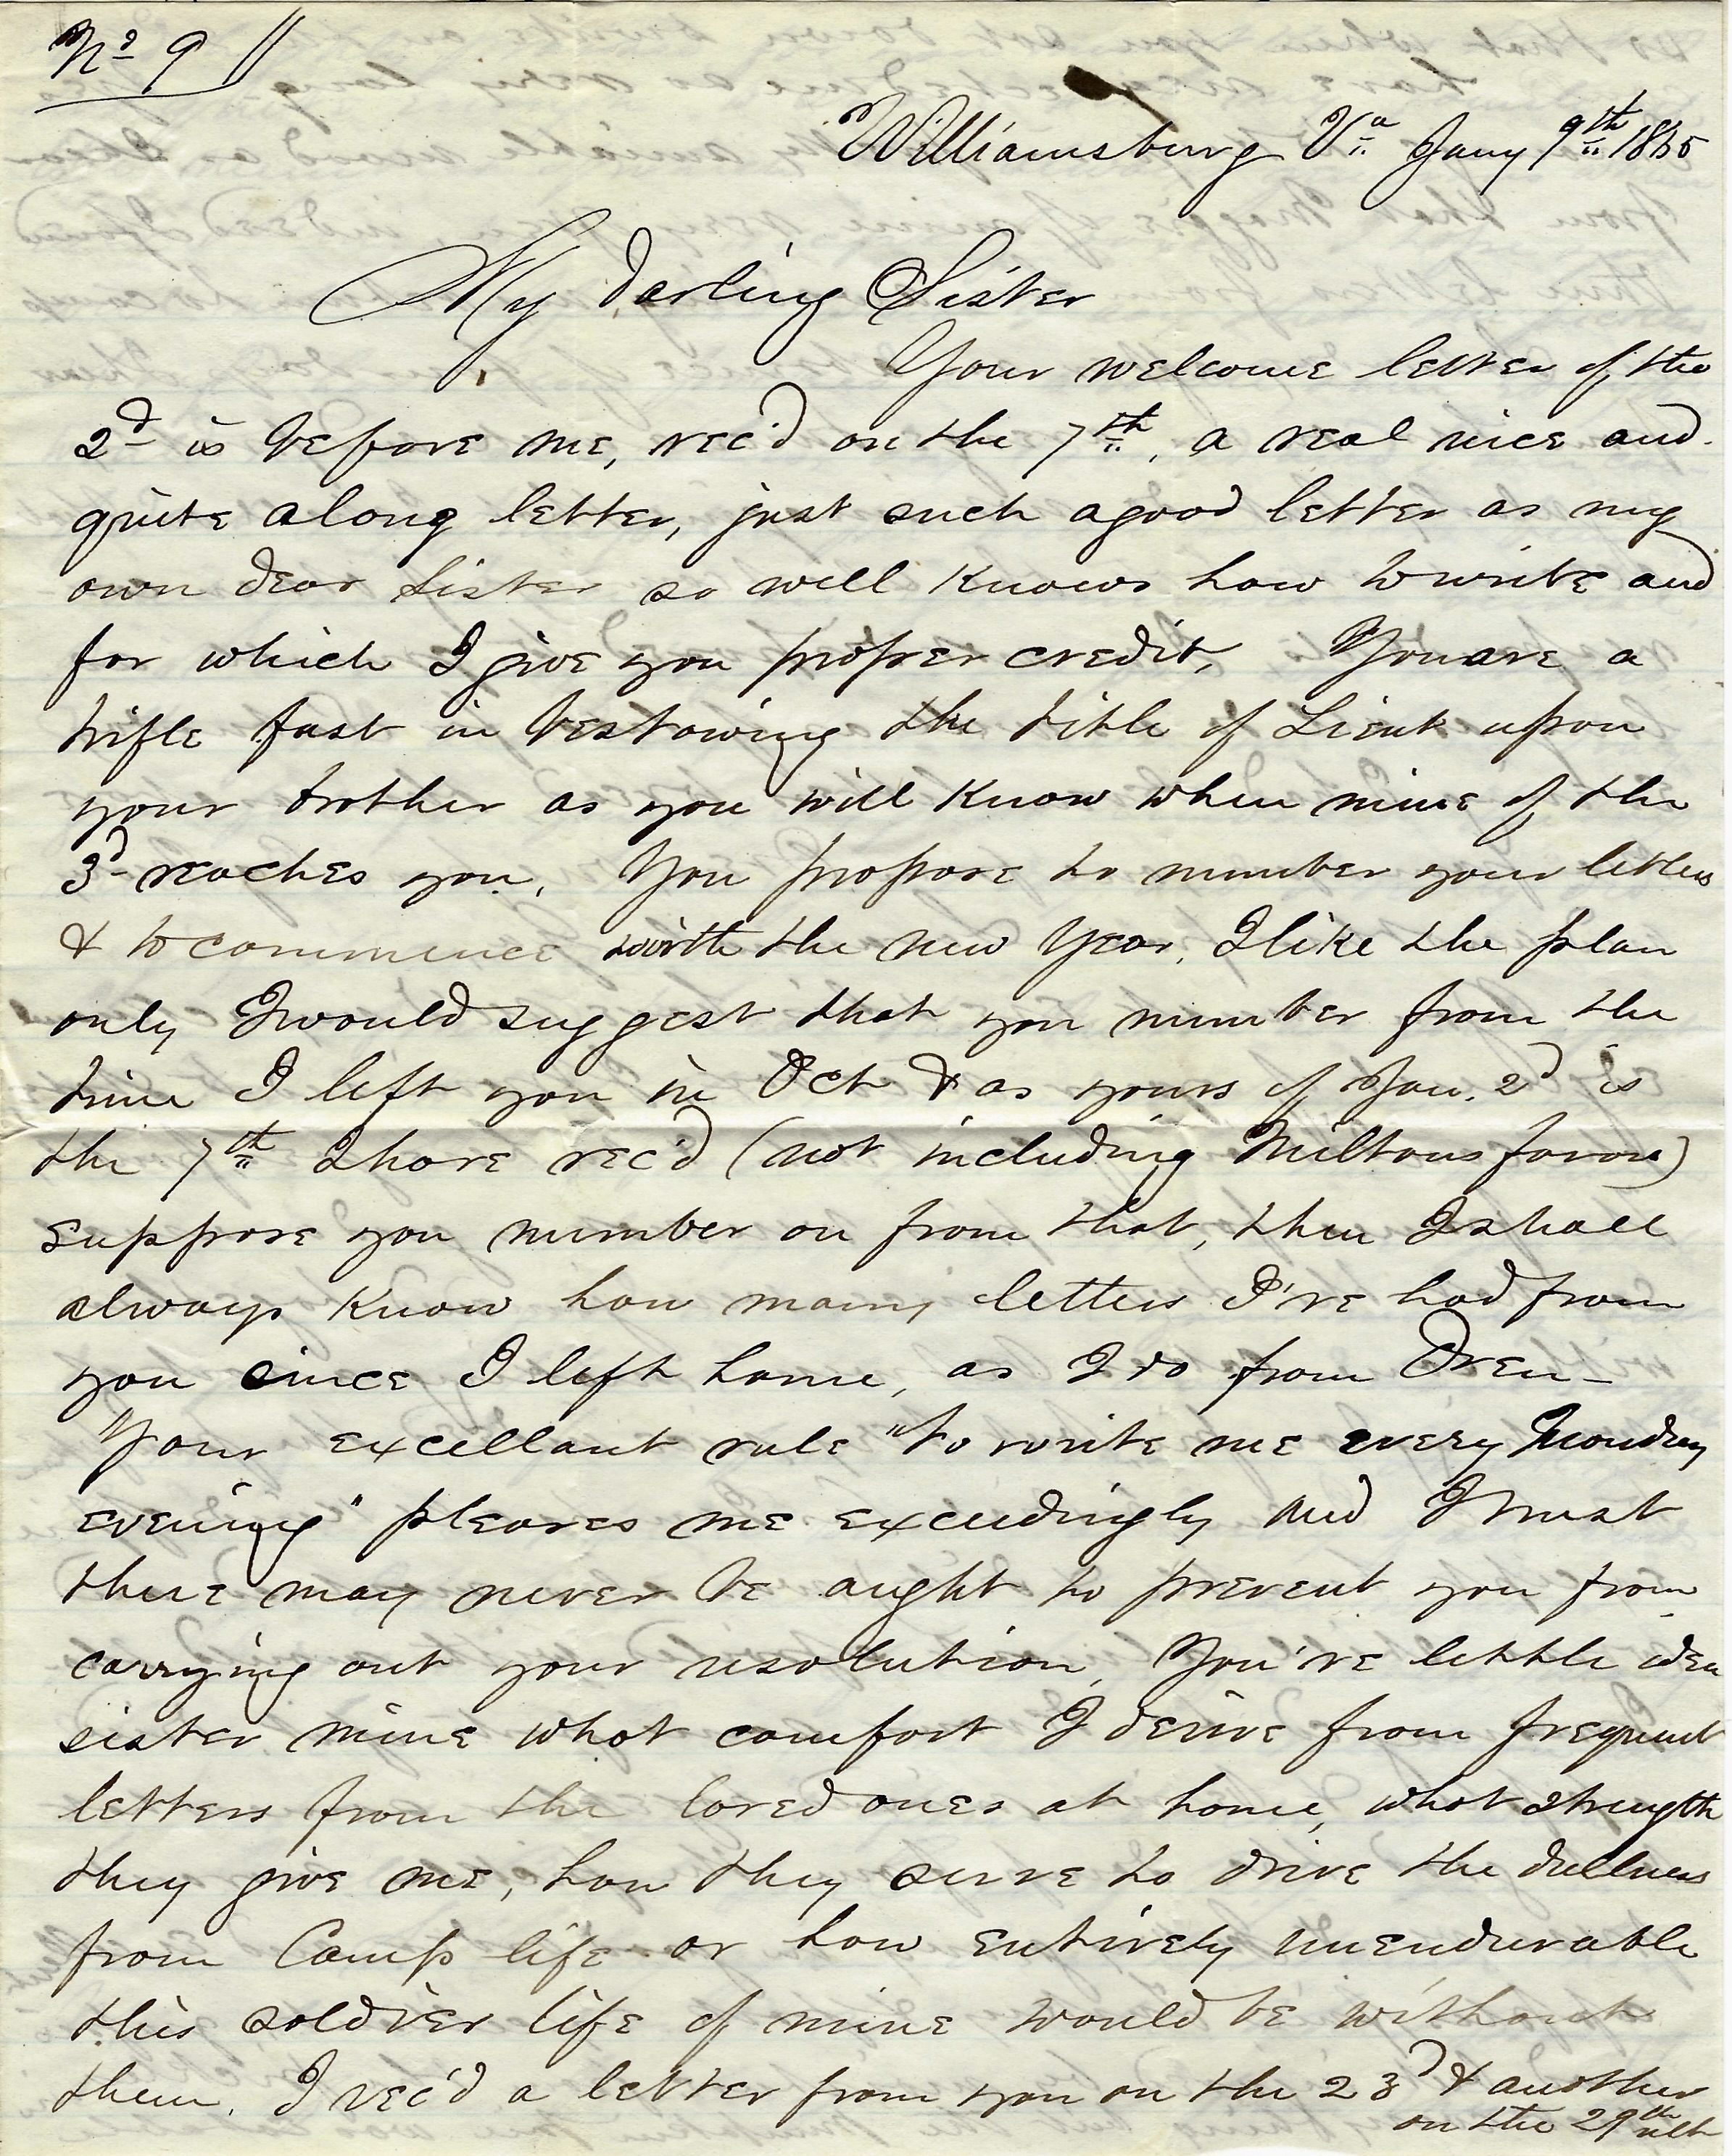 No 9
Williamsburg Va Jany 9th 1865
My Darling Sister
Your welcome letter of the
2d is before me, rec'd on the 7th, a real nice and
quite along letter, just such agood letter as my
own dear Sister so well knows how to write and
for which I give you proper credit. You are a
trifle fast in bestowing the title of Lieut upon
your brother as you will know when mine of the
3d reaches you. You propose to number your letters
& to commence with the new year. I like the plan
only I would suggest that you number from the
time I left you in Oct & as yours of Jan. 2d is
the 7th I have rec'd (not including Miltons favor)
suppose you number on from that, then I shall
always know how many letters I've had from
you since I left home, as I do from Oren -
Your excellant rule "to write me every Monday
evening" pleases me exceedingly and I trust
there may never be aught to prevent you from
carrying out your resolution. You've little idea
sister mine what comfort I derive from frequent
letters from the loved ones at home, what strength
they give me, how they serve to drive the dullness
from Camp life or how entirely unendurable
this soldier life of mine would be without
them. I rec'd a letter from you on the 23d & another
on the 29th ult